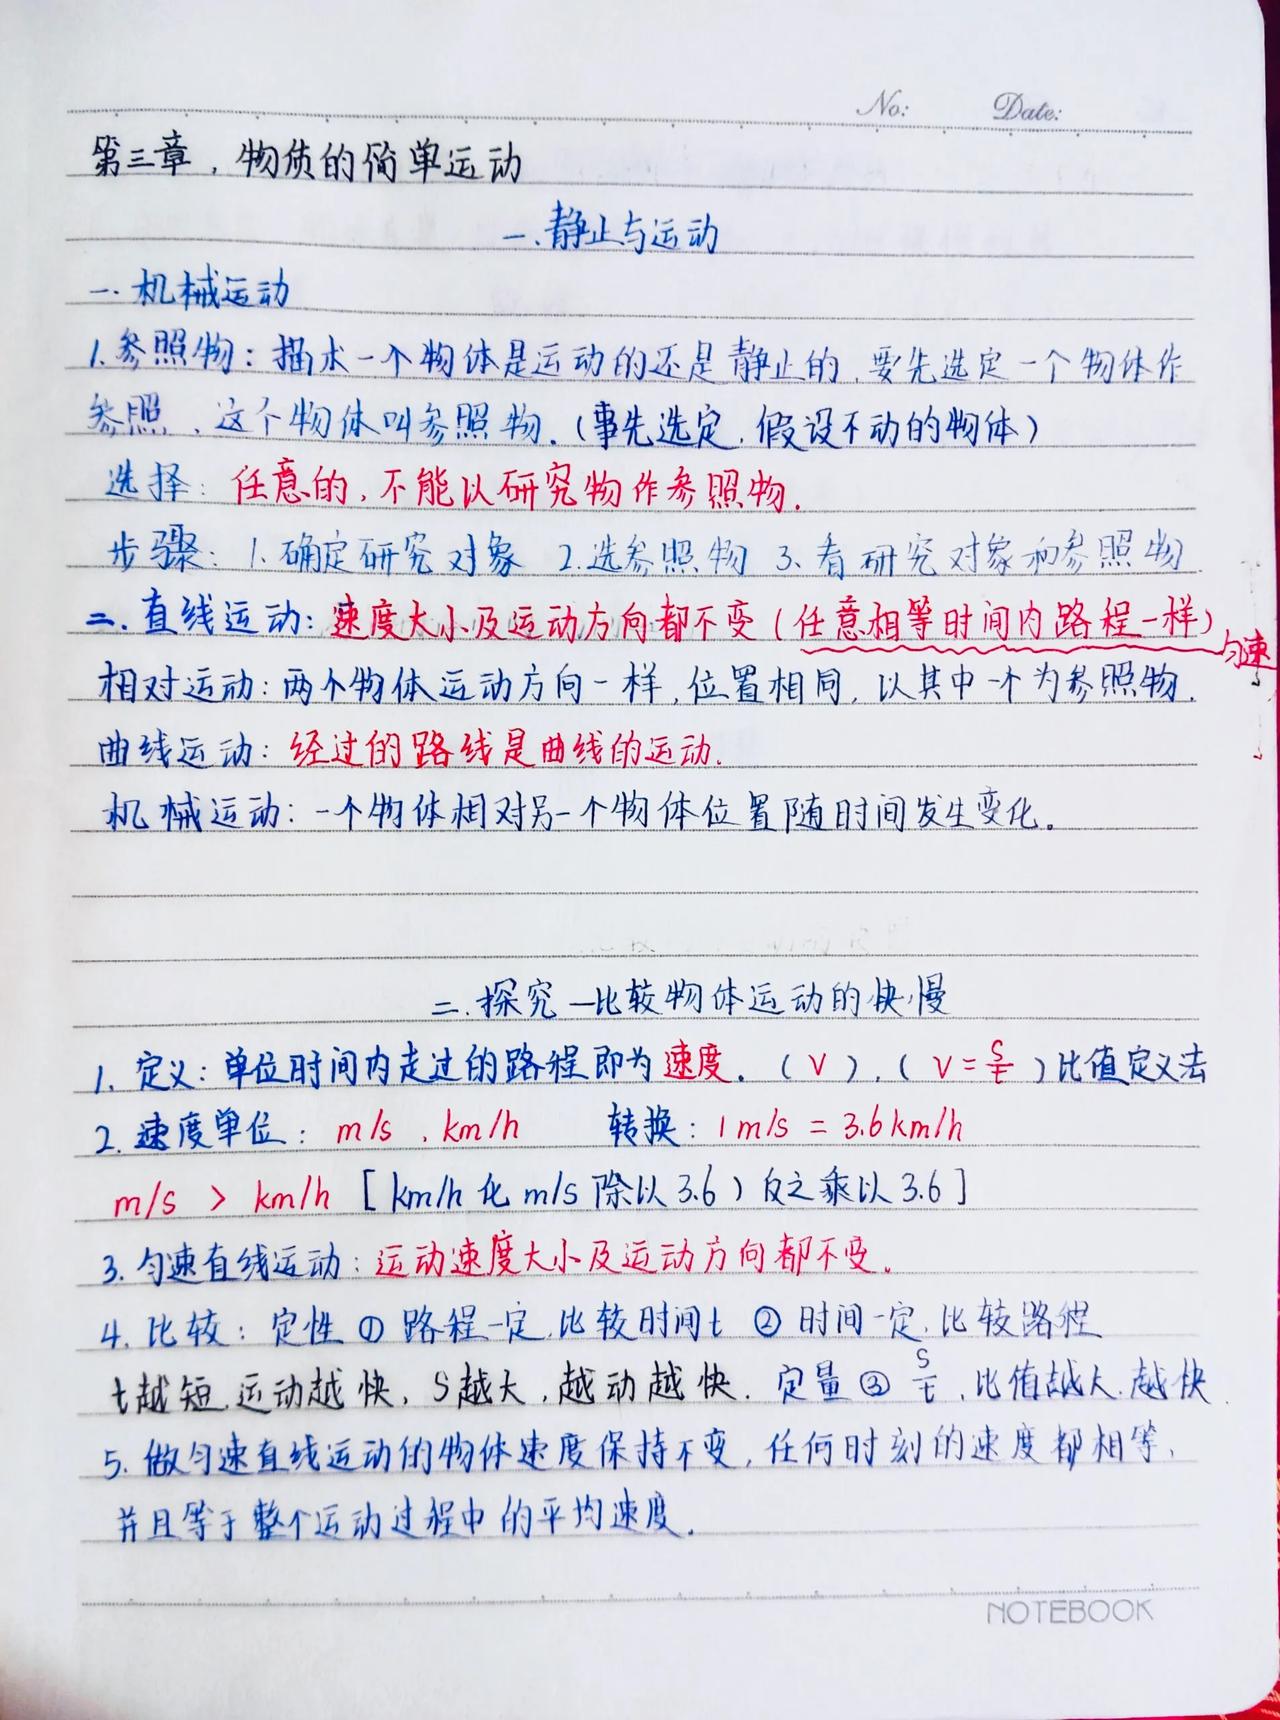 No: Date:
第三章，物质的简单运动
一.静止与运动
一.机械运动
1.参照物：描术一个物体是运动的还是静止的，要先选定一个物体作
参照，这个物体叫参照物.（事先选定，假设不动的物体）
选择：任意的，不能以研究物作参照物.
步骤：1.确定研究对象 2.选参照物 3.看研究对象和参照物.
二.直线运动：速度大小及运动方向都不变（任意相等时间内路程一样）匀速
相对运动：两个物体运动方向一样，位置相同，以其中一个为参照物.
曲线运动：经过的路线是曲线的运动.
机械运动：一个物体相对另一个物体位置随时间发生变化.
二.探究—比较物体运动的快慢
1.定义：单位时间内走过的路程即为速度.（V），（V=S/t）比值定义法
2.速度单位：m/s，km/h 转换：1m/s=3.6km/h
m/s > km/h [km/h化m/s除以3.6）反之乘以3.6]
3.匀速直线运动：运动速度大小及运动方向都不变.
4.比较：定性 ①路程一定，比较时间t ②时间一定，比较路程
t越短，运动越快，S越大，越动越快. 定量③ S/t，比值越大，越快.
5.做匀速直线运动的物体速度保持不变，任何时刻的速度都相等，
并且等于整个运动过程中的平均速度.
NOTEBOOK